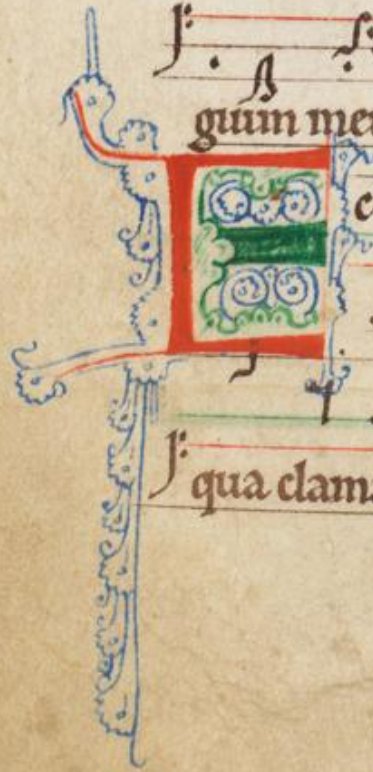 guim meu
E c
qua clama